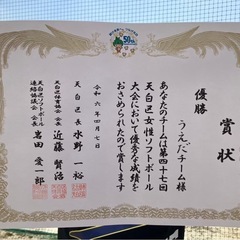 賞状
優勝
うえだチーム様
あなたのチームは第四十七回
天白区女性ソフトボール
大会において優秀な成績を
おさめられたので賞します
令和六年四月七日
天白区長 水野一裕
天白区体育協会 会長 近藤賢治
天白区ソフトボール
連絡協議会 会長 岩田愛一郎